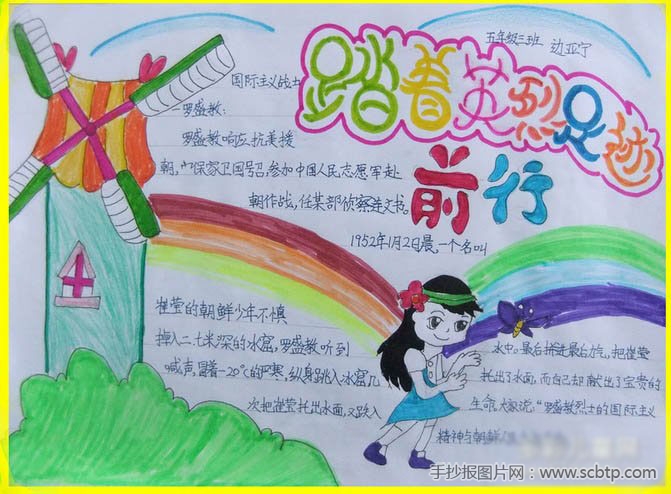 五年级三班 边亚宁
踏着英烈足迹
前行
国际主义战士
—罗盛教:
罗盛教响应抗美援
朝,"保家卫国号召,参加中国人民志愿军赴
朝作战,任某部侦察连文书。
1952年1月2日晨,一个名叫
崔莹的朝鲜少年不慎
掉入二七米深的冰窟,罗盛教听到
喊声,冒着-20℃的严寒,纵身跳入冰窟几
次把崔莹托出水面,又跌入
水中。最后拼进最后力气,把崔莹
托出了水面,而自己却献出了宝贵的
生命.大家说:"罗盛教烈士的国际主义
精神与朝鲜
手抄报图片网:www.scbtp.com